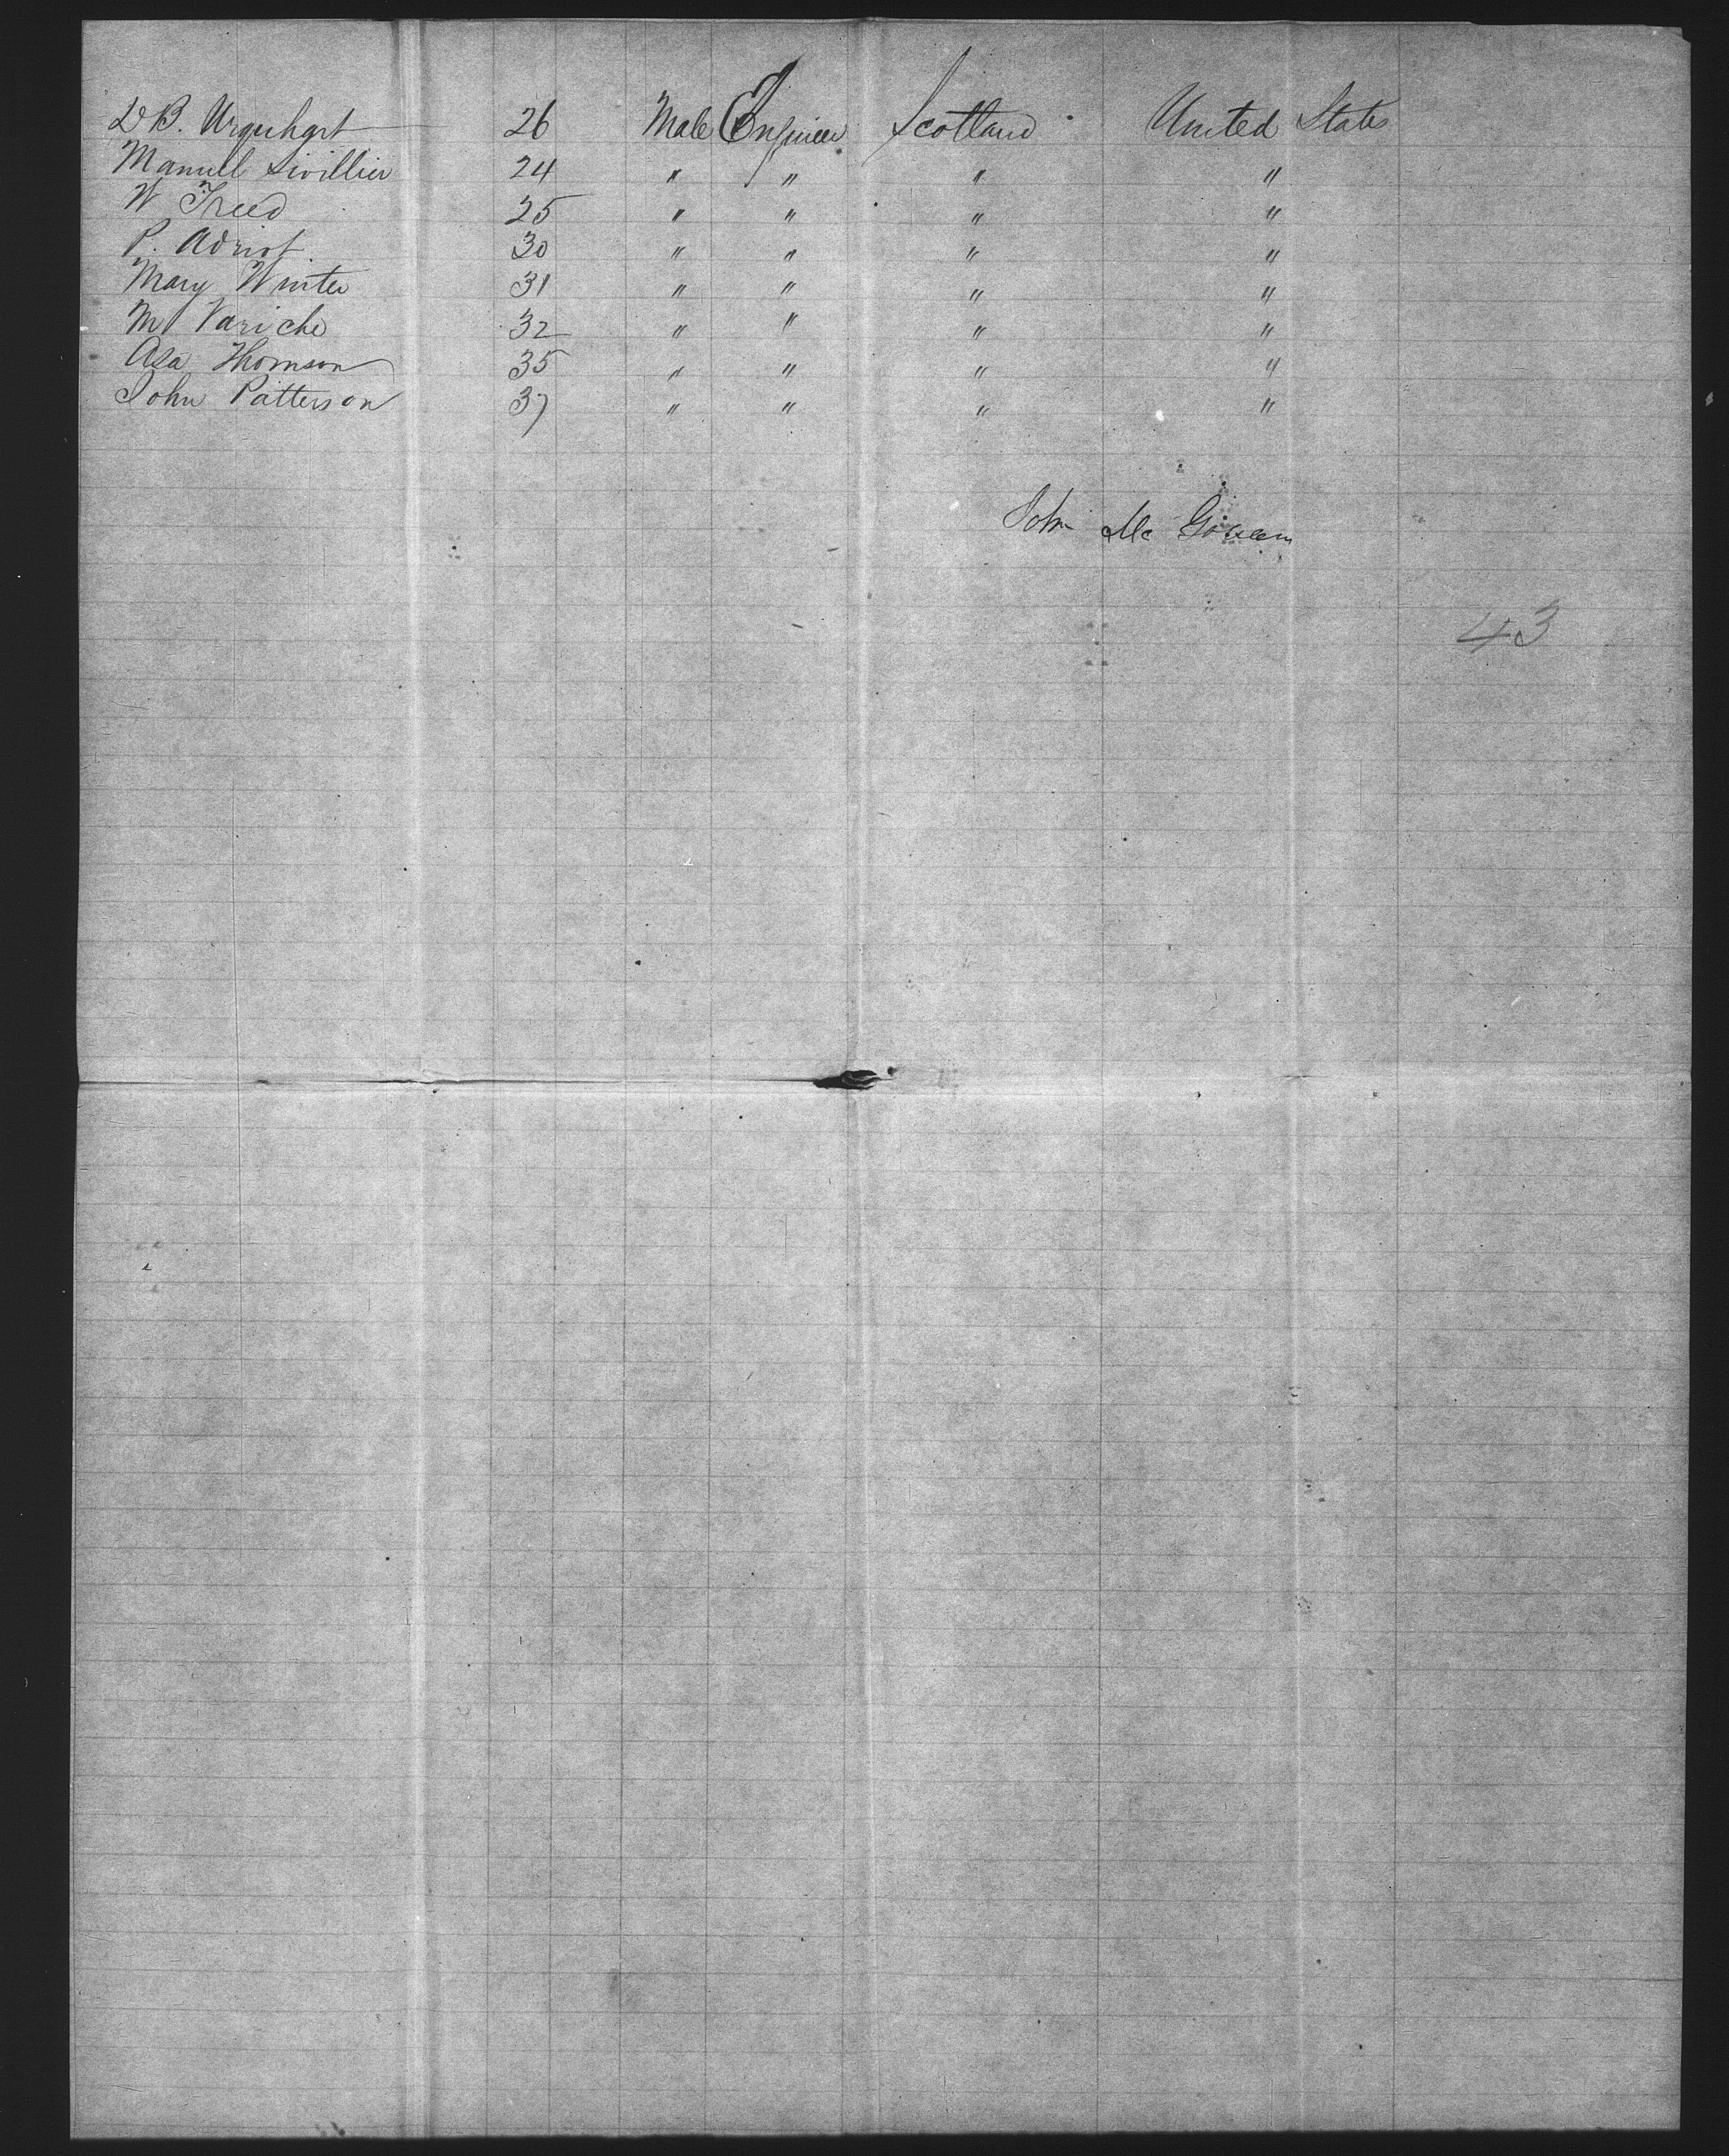 D B. Urquhart 26 Male Engineer Scotland United States
Manuel Sivillier 24 " " " "
W Freed 25 " " " "
P. Adriot 30 " " " "
Mary Winter 31 " " " "
M Variche 32 " " " "
Asa Thomson 35 " " " "
John Patterson 37 " " " "
John Mc Gowan
43